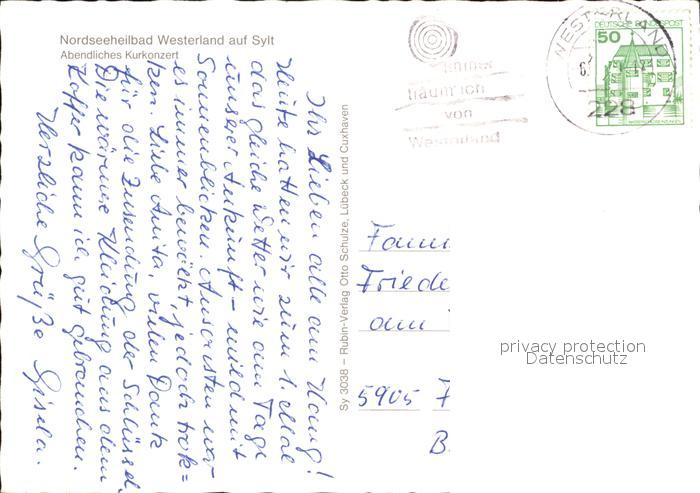 Nordseeheilbad Westerland auf Sylt
Abendliches Kurkonzert
Ihr Lieben alle am Hang!
Heute hatten wir zum 1. Mal
das gleiche Wetter wie am Tage
unserer Ankunft - mild mit
Sonnenblicken. Ansonsten war
es immer bewölkt, jedoch trok=
ken. Liebe Anita, vielen Dank
für die Zusendung der Schlüssel.
Die wärmere Kleidung aus dem
Koffer kann ich gut gebrauchen.
Herzliche Grüße Gisela.
Sy 3038 – Rubin-Verlag Otto Schulze, Lübeck und Cuxhaven
träum ich
von
Westerland
WESTERLAND
228
DEUTSCHE BUNDESPOST
50
Fami
Friede
am
5905 F
B
privacy protection
Datenschutz